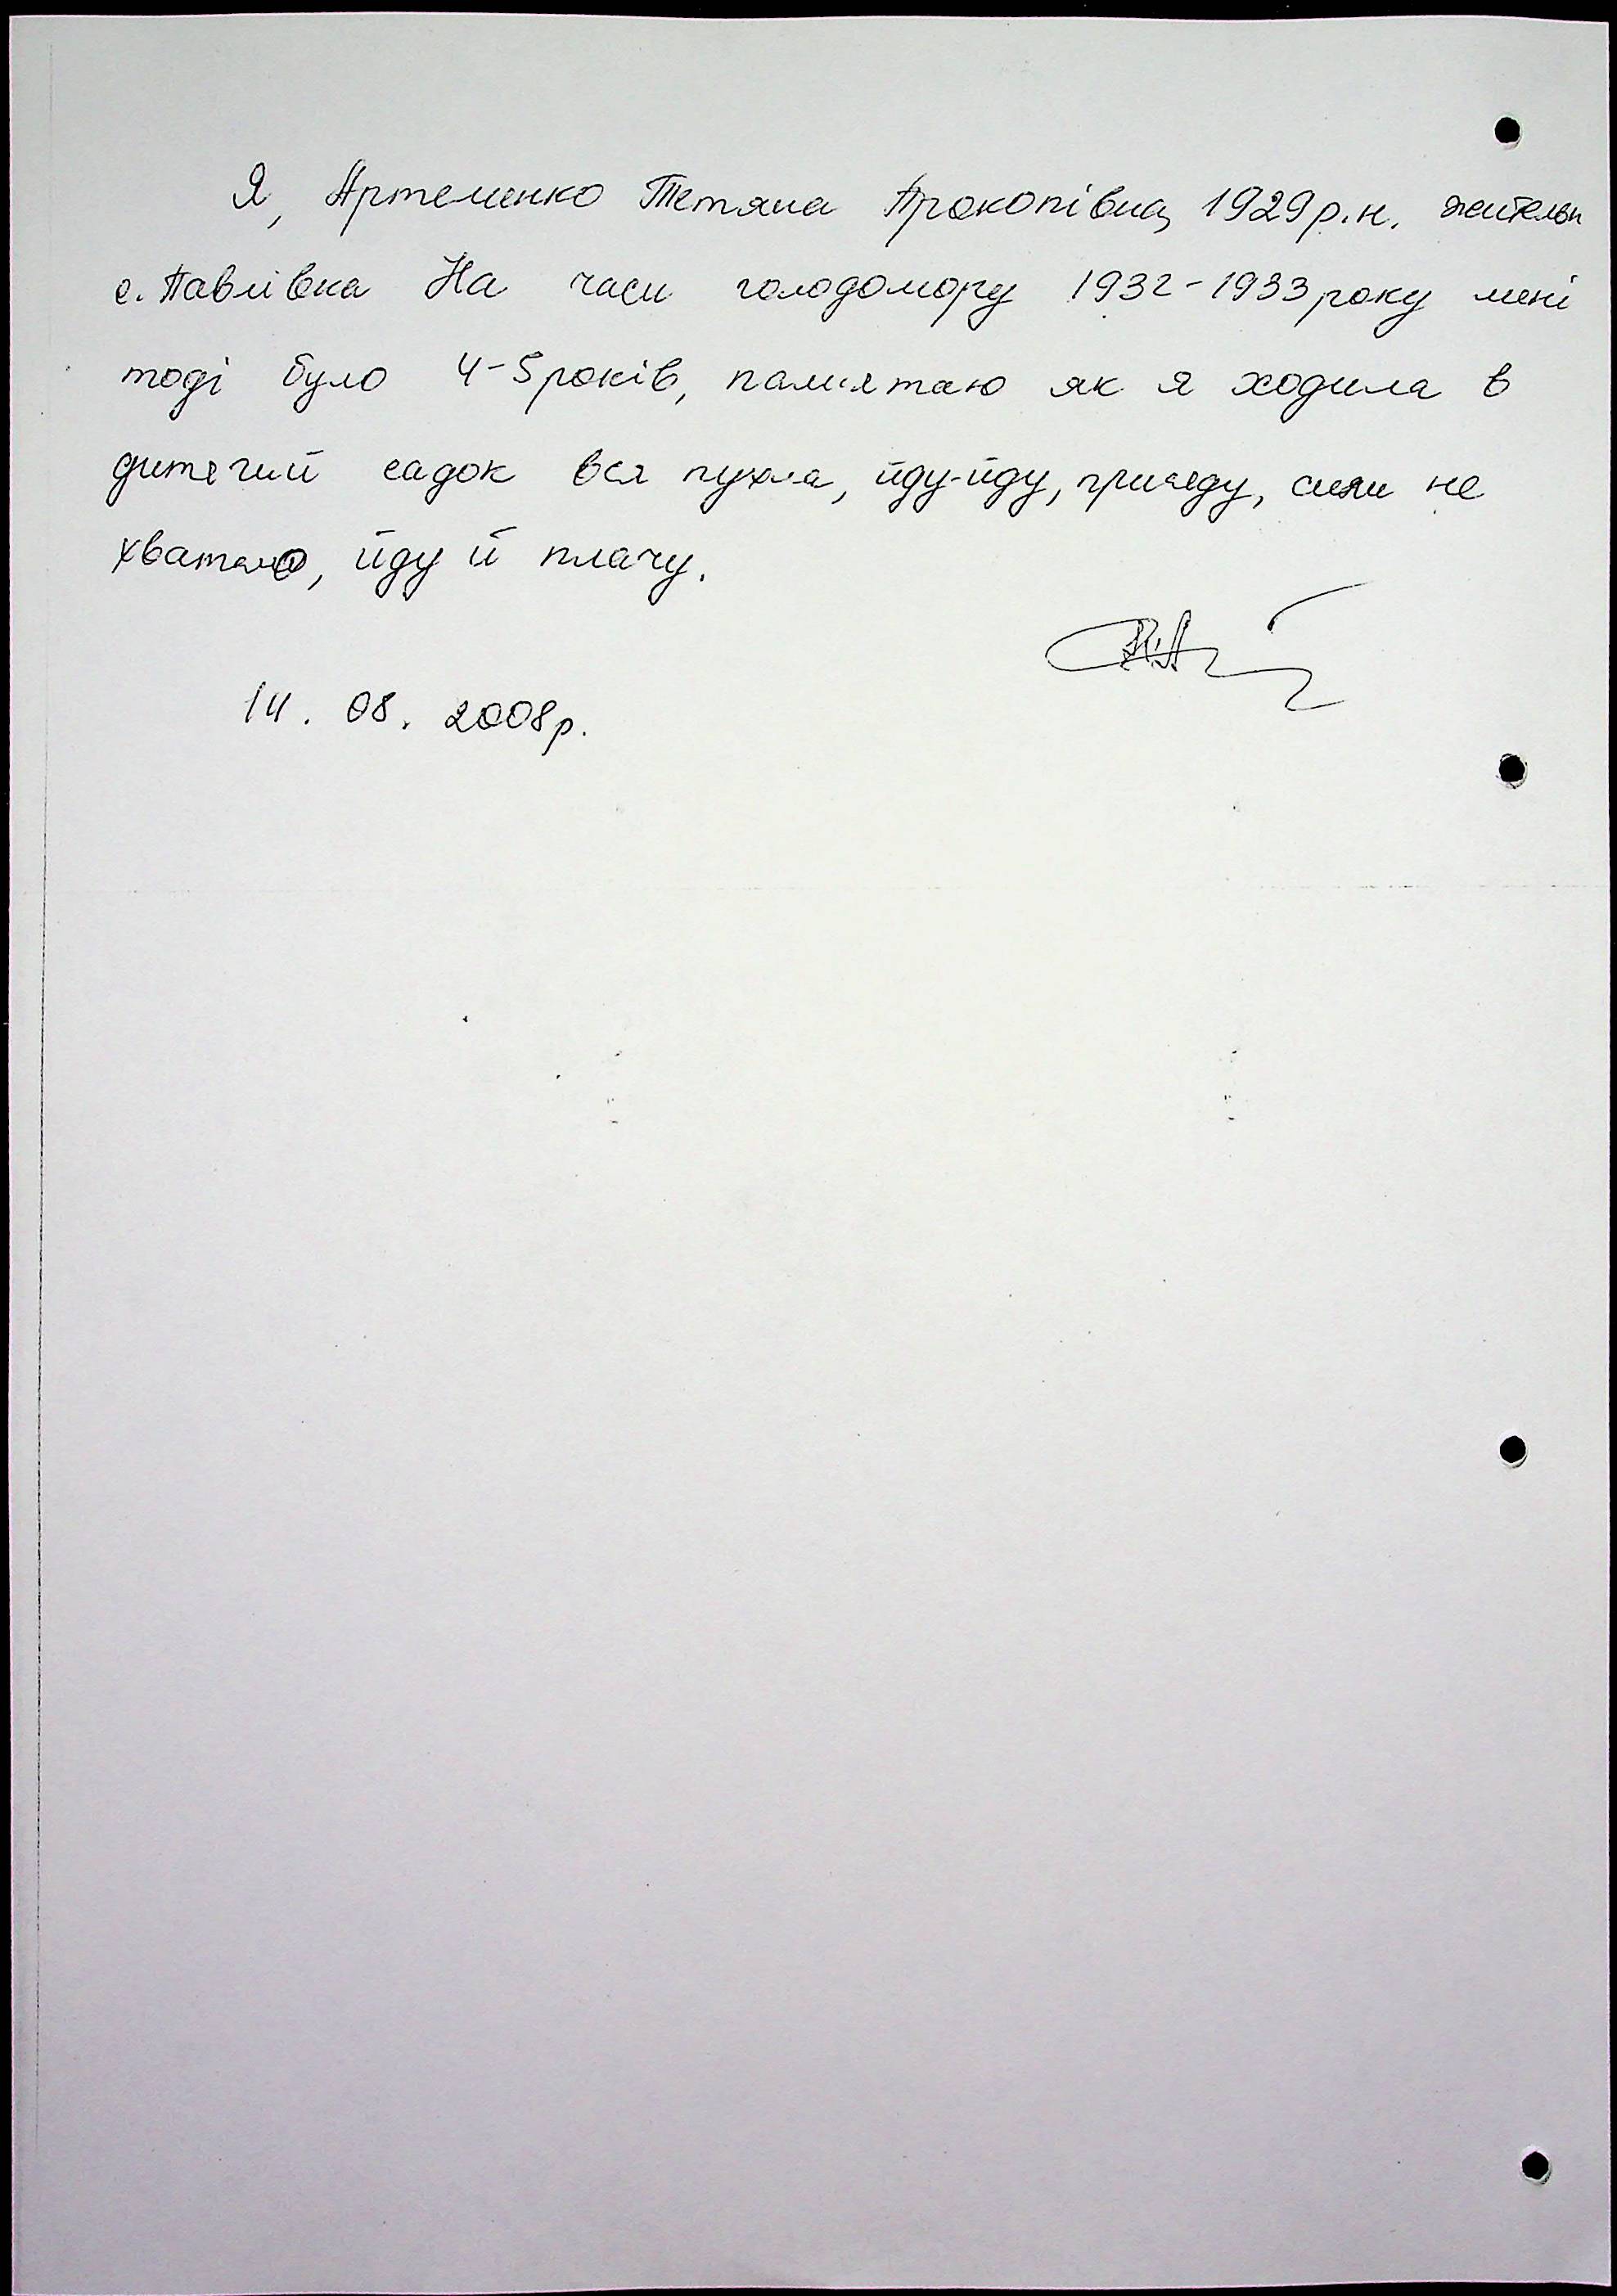 Я, Артеменко Тетяна Прокопівна, 1929р.н. жительн
с. Павлівка На часи голодомору 1932-1933року мені
тоді було 4-5років, пам'ятаю як я ходила в
дитячий садок вся пухла, йду-йду, присяду, сили не
хватало, йду й плачу.
14. 08. 2008р.